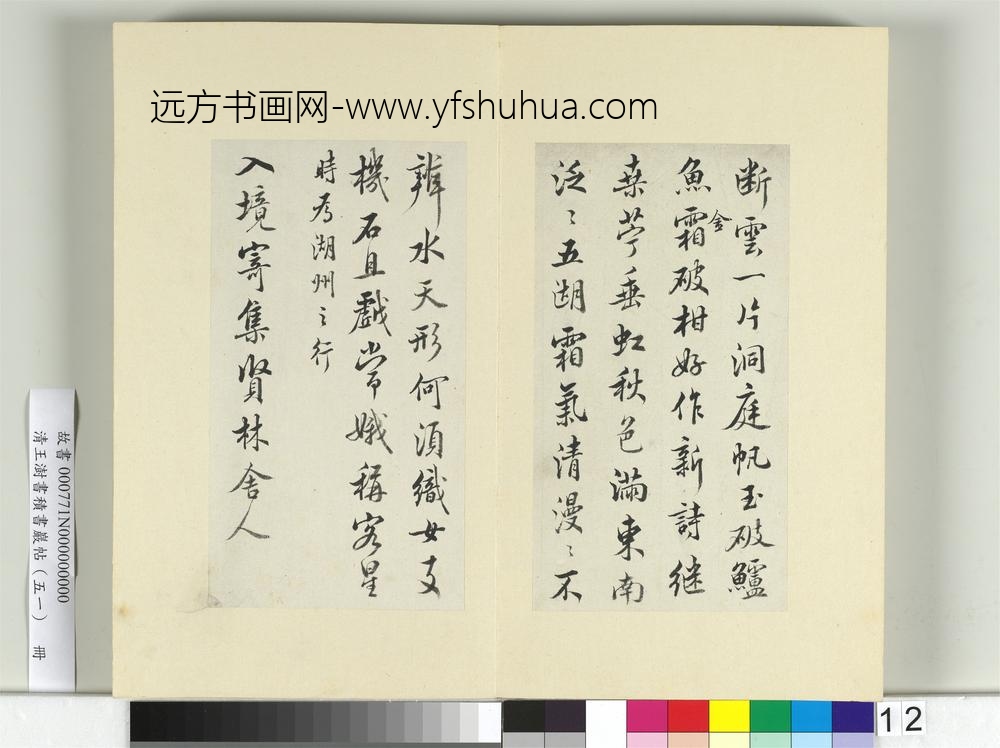 远方书画网-www.yfshuhua.com
断雲一片洞庭帆玉破鱸
魚霜破柑好作新詩继
金
桒苧垂虹秋色滿東南
泛〻五湖霜氣清漫〻不
辨水天形何須織女支
機石且戲常娥稱客星
時為湖州之行
入境寄集賢林舍人
故書 000771N000000000
清王澍書積書巖帖（五一） 冊
12